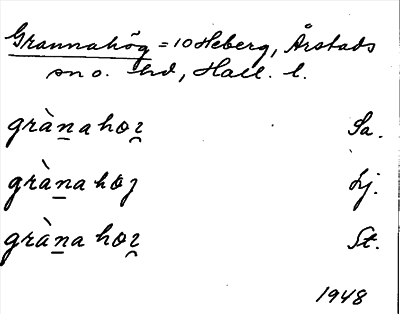 Grannahög = 10 Heberg, Årstads
sn o. hd, Hall. l.
gràn̲ahoʓ̯ Sa.
gràn̲ahoj Lj.
gràn̲ahoʓ̯ St.
1948